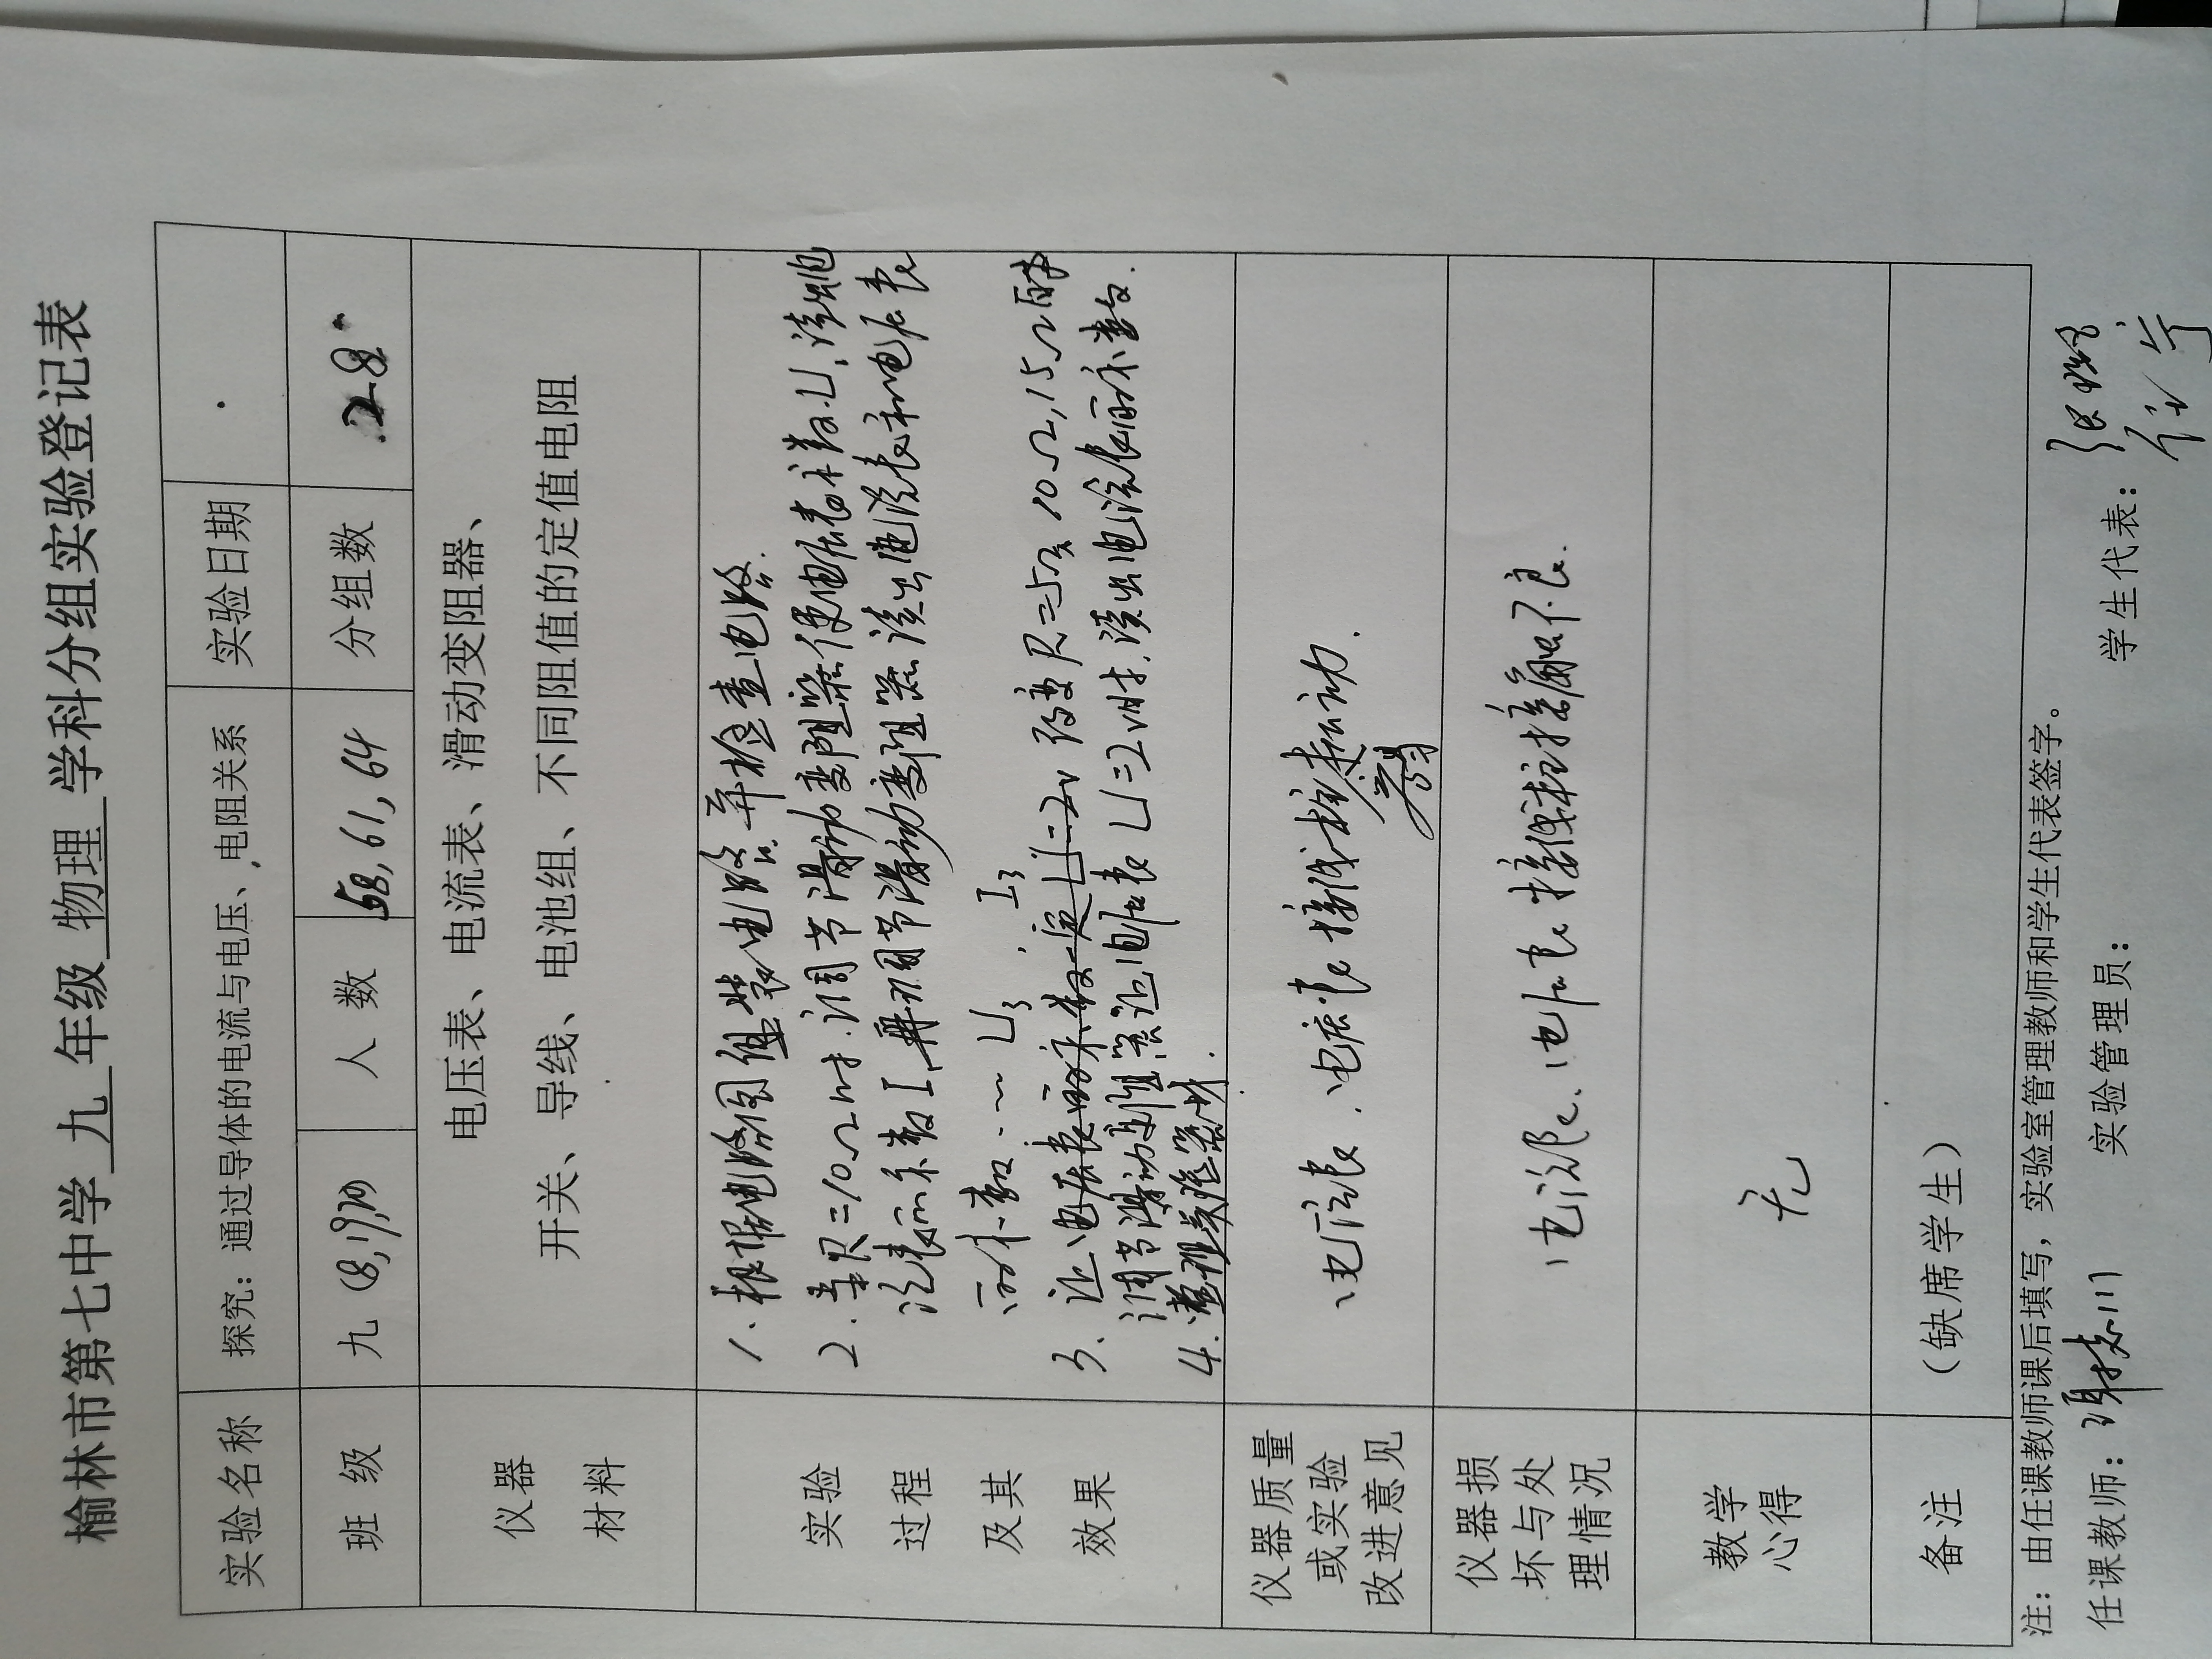 榆林市第七中学 九 年级 物理 学科分组实验登记表
实验名称 探究：通过导体的电流与电压、电阻关系 实验日期
班 级 九(8,19,20) 人 数 58,61,64 分组数 28
仪器
材料
电压表、电流表、滑动变阻器、
开关、导线、电池组、不同阻值的定值电阻
实验
过程
及其
效果
1、根据电路图组装电路并检查电路.
2.当R=10Ω时.调节滑动变阻器使电压表示数U,读出电
流表示数I,再调节滑动变阻器读出电流表和电压表
示数... U3, I3
3、让 改变R=5Ω 10Ω,15Ω时
调节滑动变阻器让电压表U=2V时.读出电流表示数.
4.整理实验器材.
仪器质量
或实验
改进意见
电流表、电压表接线柱 动.
易
仪器损
坏与处
理情况
电流表、电压表接线柱接触不良.
教学
心得
无
备注
（缺席学生）
注：由任课教师课后填写，实验室管理教师和学生代表签字。
任课教师： 实验管理员： 学生代表：